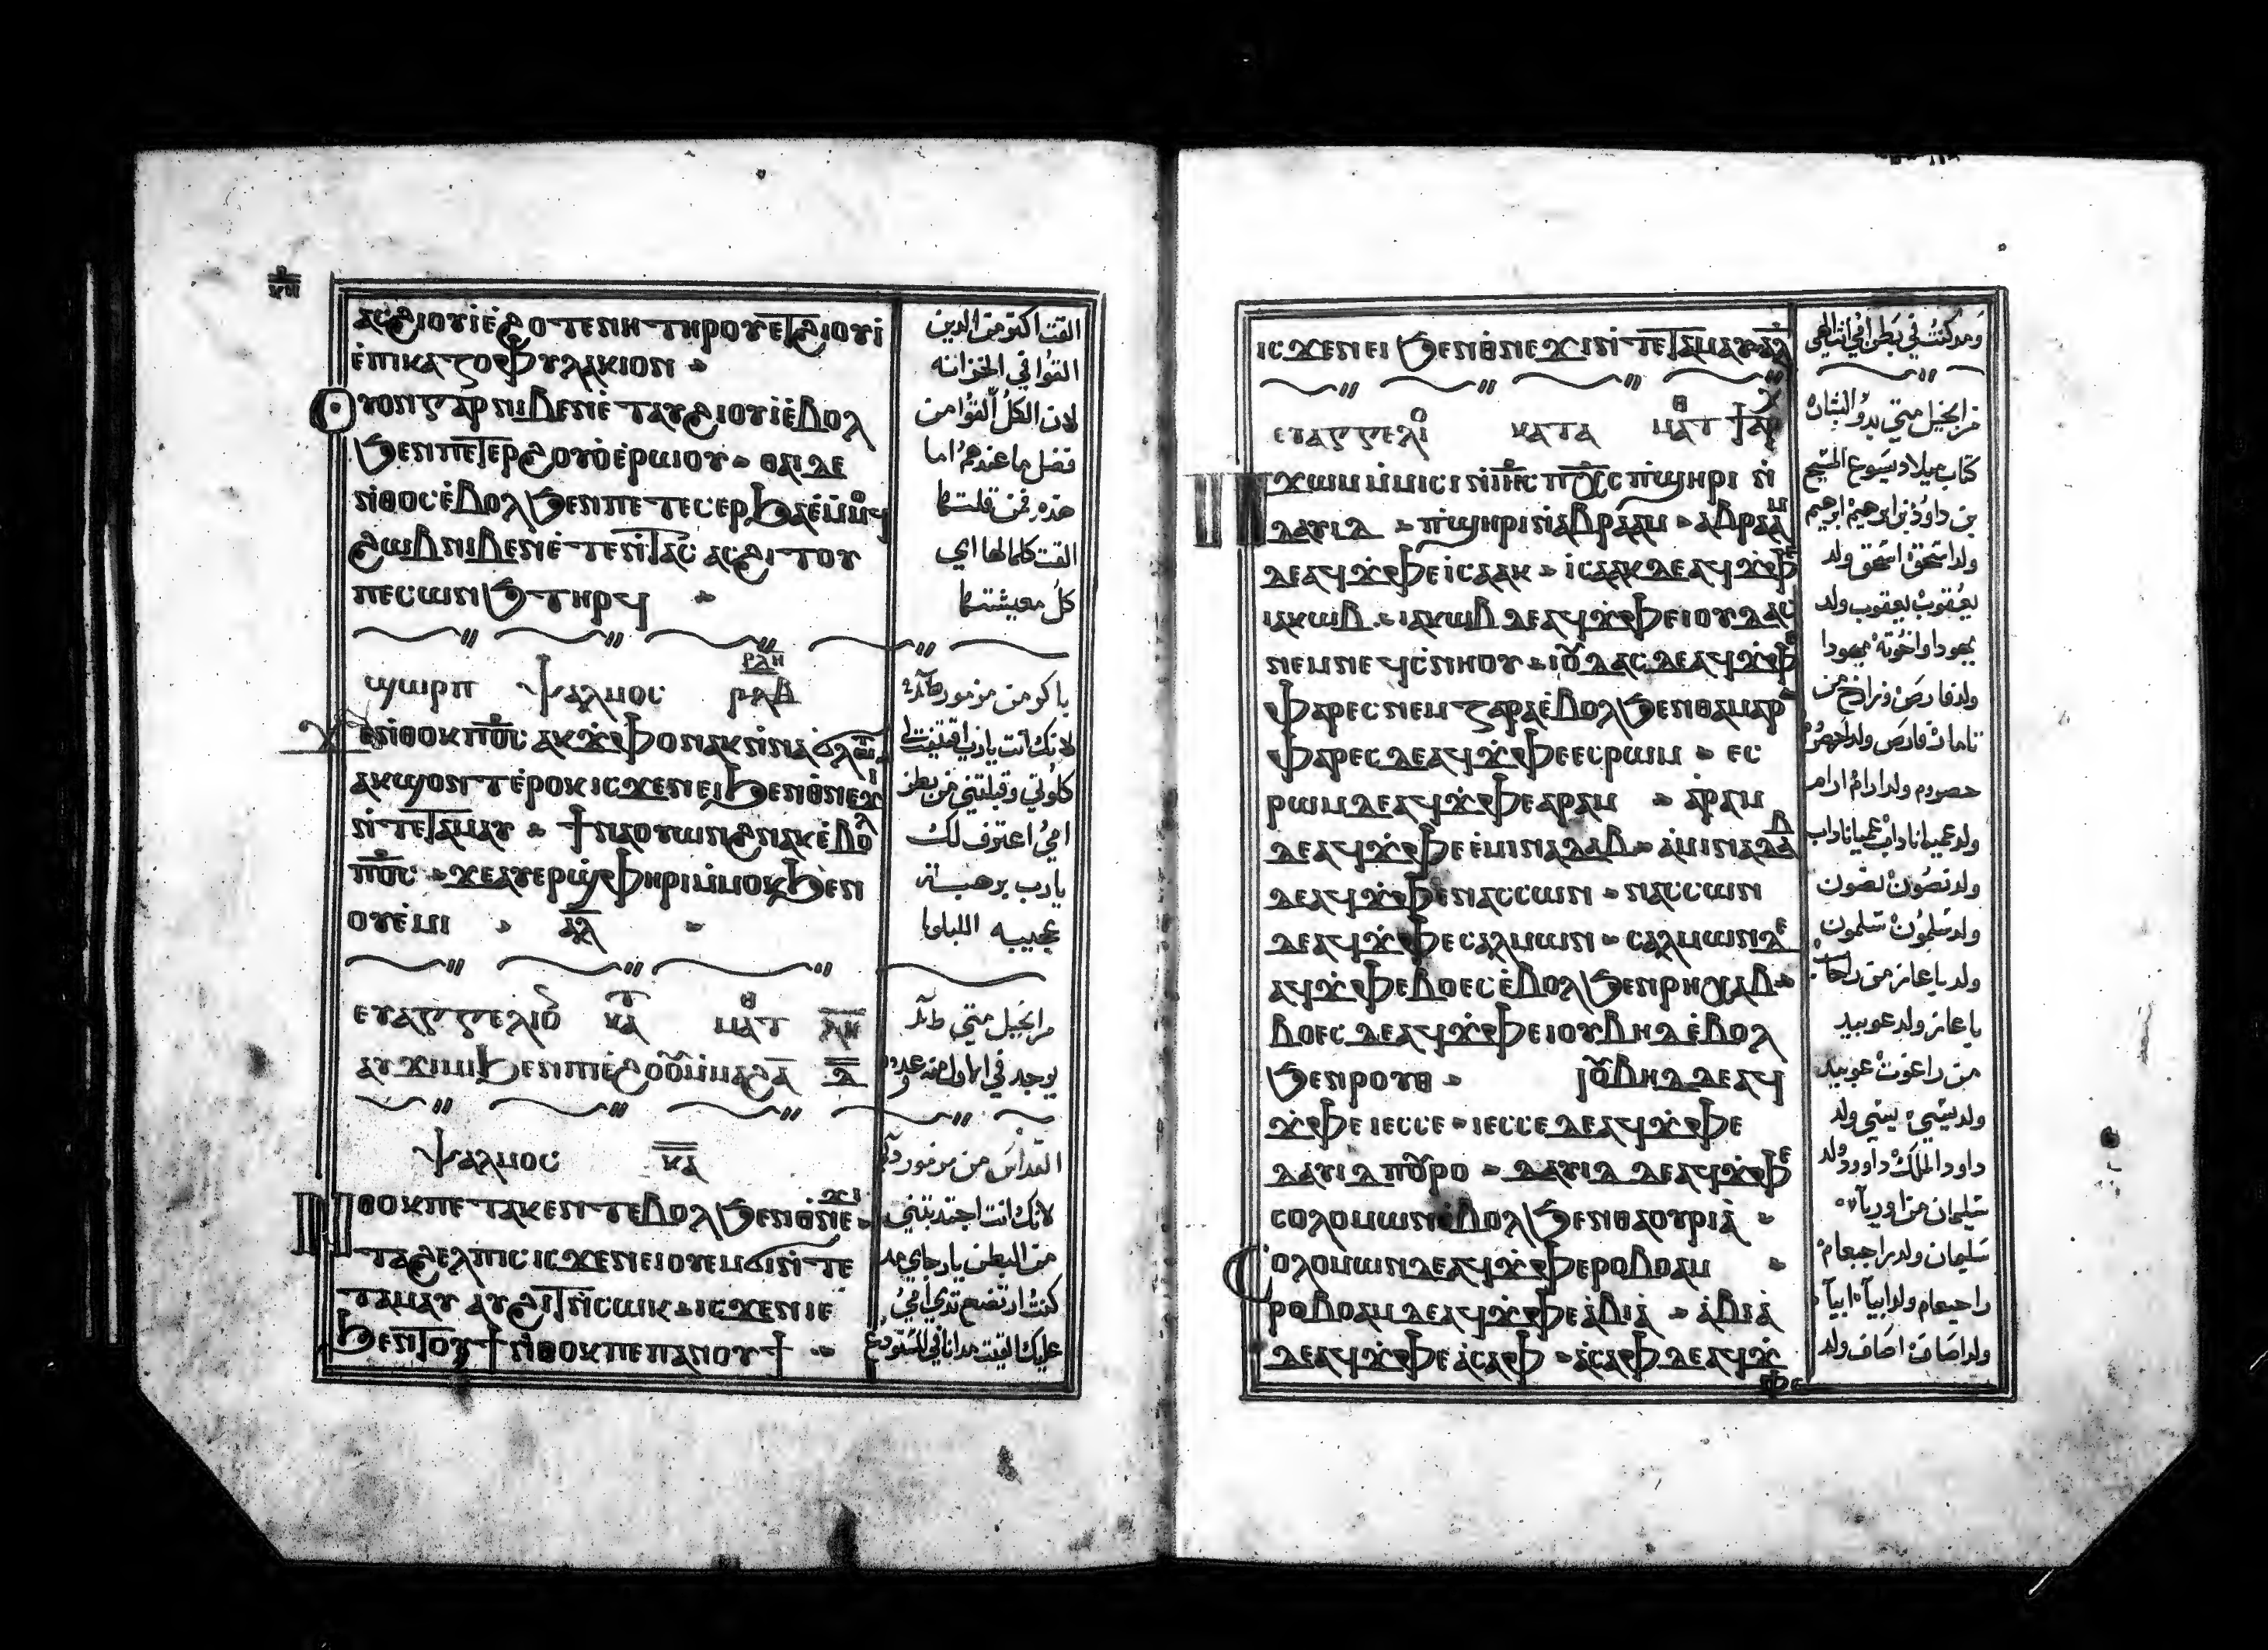 ⲕⲏ
ⲁⲥϩⲓⲟⲩⲓ̀ⲉ̀ϩⲟⲧⲉⲛⲏ ⲧⲏⲣⲟⲩⲉⲧϩⲓⲟⲩⲓ̀
ⲉ̀ⲡⲓⲕⲁⲍⲟⲫⲩⲗⲁⲕⲓⲟⲛ
ⲟⲩⲟⲛⲅⲁⲣⲛⲓⲃⲉⲛⲉ̀ⲧⲁⲩϩⲓⲟⲩⲓ̀ⲉ̀ⲃⲟⲗ
ϧⲉⲛⲡⲉⲧⲉⲣϩⲟⲩⲟ̀ⲉ̀ⲣⲱⲟⲩ ⲑⲁⲓⲇⲉ
ⲛ̀ⲑⲟⲥⲉ̀ⲃⲟⲗϧⲉⲛⲡⲉⲧⲉⲥⲉⲣϧⲁⲉ̀ⲙ̀ⲙⲟϥ
ϩⲱⲃⲛⲓⲃⲉⲛⲉ̀ⲧⲉⲛⲧⲁⲥ ⲁⲥϩⲓⲧⲟⲩ
ⲡⲉⲥⲱⲛϧ ⲧⲏⲣϥ
ϣⲱⲣⲡ ⲯⲁⲗⲙⲟⲥ ⲣⲗⲏ ⲣⲗⲃ
ϫⲉⲛ̀ⲑⲟⲕⲡ⳪ ⲁⲕϫⲫⲟⲛⲁⲕⲛ̀ⲛⲁϭⲗⲱⲧ
ⲁⲕϣⲟⲡⲧⲉ̀ⲣⲟⲕⲓⲥϫⲉⲛⲉⲓϧⲉⲛⲑ̀ⲛⲉϫⲓ
ⲛ̀ⲧⲉⲧⲁⲙⲁⲩ ϯⲛⲁⲟⲩⲱⲛϩⲛⲁⲕⲉ̀ⲃⲟⲗ
ⲡ⳪ ϫⲉⲁⲩⲉⲣϣⲫⲏⲣⲓⲙ̀ⲙⲟⲕϧⲉⲛ
ⲟⲩⲉ̀ⲙⲓ ⲁⲗ
ⲉⲩⲁⲅⲅⲉⲗⲓⲟ ⲕⲁⲧ ⲙⲁⲧⲑ
ⲁⲩϫⲓⲙⲓϧⲉⲛⲡⲓⲉ̀ϩⲟⲟⲩⲙ̀ⲙⲁϩⲁ ⲇ
ⲯⲁⲗⲙⲟⲥ ⲕⲁ
ⲛ̀ⲑⲟⲕⲡⲉⲧⲁⲕⲉⲛⲧⲉⲃⲟⲗϧⲉⲛⲑ̀ⲛⲉϫⲓ
ⲧⲁϩⲉⲗⲡⲓⲥ ⲓⲥϫⲉⲛⲉⲓⲟⲩⲉⲙϭⲓⲛ̀ⲧⲉ
ⲧⲁⲙⲁⲩ ⲁⲩϩⲓⲧⲛ̀ⲥⲱⲕ ⲓⲥϫⲉⲛⲓⲉ
ϧⲉⲛⲧⲟⲩϯⲛ̀ⲑⲟⲕⲡⲉⲡⲁⲛⲟⲩϯ
القت اكثر من الدين
القوا في الخزانه
لان الكل القوا من
فضل ما عندهم اما
هذه فمن قلتها
القت كلما لها اي
كل معيشتها
باكر من مزمور
لانك انت يارب اقتنيت
كلوتي وقبلتني من بطن
امي اعترف لك
يارب برهبة
عجيبه الليلويا
من انجيل متي
يوجد في الاول منه
القداس من مزمور
لانك انت اجتذبتني
من البطن يا رجاي مذ
كنت ارتضع ثدي امي
عليك القيت مدانا في المستودع
ⲓⲥϫⲉⲛⲉⲓ ϧⲉⲛⲑ̀ⲛⲉϫⲓⲛ̀ⲧⲉⲧⲁⲙⲁⲩ ⲁⲗ
ⲉⲩⲁⲅⲅⲉⲗⲓⲟ ⲕⲁⲧⲁ ⲙⲁⲧⲑ
ⲡϫⲱⲙⲙ̀ⲙⲓⲥⲓⲛ̀ⲓⲏⲥⲡⲭⲥ ⲡ̀ϣⲏⲣⲓ ⲛ̀
ⲇⲁⲩⲓⲇ ⲡ̀ϣⲏⲣⲓⲛ̀ⲁⲃⲣⲁⲁⲙ ⲁⲃⲣⲁⲁⲙ
ⲇⲉⲁϥϫⲫⲉⲓⲥⲁⲁⲕ ⲓⲥⲁⲁⲕⲇⲉⲁϥϫⲫⲉ
ⲓⲁⲕⲱⲃ ⲓⲁⲕⲱⲃⲇⲉⲁϥϫⲫⲉⲓⲟⲩⲇⲁⲥ
ⲛⲉⲙⲛⲉϥⲥ̀ⲛⲏⲟⲩ ⲓⲟⲩⲇⲁⲥⲇⲉⲁϥϫⲫⲉ
ⲫⲁⲣⲉⲥⲛⲉⲙ ⲍⲁⲣⲁⲉ̀ⲃⲟⲗϧⲉⲛⲑⲁⲙⲁⲣ
ⲫⲁⲣⲉⲥⲇⲉⲁϥϫⲫⲉⲉⲥⲣⲱⲙ ⲉⲥ
ⲣⲱⲙⲇⲉⲁϥϫⲫⲉⲁⲣⲁⲙ ⲁⲣⲁⲙ
ⲇⲉⲁϥϫⲫⲉⲉ̀ⲙⲓⲛⲁⲇⲁⲃ ⲁ̀ⲙⲓⲛⲁⲇⲁⲃ
ⲇⲉⲁϥϫⲫⲉⲛⲁⲥⲥⲱⲛ ⲛⲁⲥⲥⲱⲛ
ⲇⲉⲁϥϫⲫⲉⲥⲁⲗⲙⲱⲛ ⲥⲁⲗⲙⲱⲛⲇⲉ
ⲁϥϫⲫⲉⲃⲟⲉⲥⲉ̀ⲃⲟⲗϧⲉⲛⲣⲏⲭⲁⲃ
ⲃⲟⲉⲥ ⲇⲉⲁϥϫⲫⲉⲓⲟⲩⲃⲏⲇ ⲉ̀ⲃⲟⲗ
ϧⲉⲛⲣⲟⲩⲑ ⲓⲟⲩⲃⲏⲇⲇⲉⲁϥ
ϫⲫⲉ ⲓⲉⲥⲥⲉ ⲓⲉⲥⲥⲉⲇⲉⲁϥϫⲫⲉ
ⲇⲁⲩⲓⲇⲡⲟⲩⲣⲟ ⲇⲁⲩⲓⲇ ⲇⲉⲁϥϫⲫⲉ
ⲥⲟⲗⲟⲙⲱⲛⲉ̀ⲃⲟⲗϧⲉⲛⲑⲁⲟⲩⲣⲓⲁ
ⲥⲟⲗⲟⲙⲱⲛⲇⲉⲁϥϫⲫⲉⲣⲟⲃⲟⲁⲙ
ⲣⲟⲃⲟⲁⲙⲇⲉⲁϥϫⲫⲉⲁ̀ⲃⲓⲁ̀ ⲁ̀ⲃⲓⲁ̀
ⲇⲉⲁϥϫⲫⲉⲁ̀ⲥⲁⲫ ⲁ̀ⲥⲁⲫⲇⲉⲁϥϫ
ⲫⲉ
ومذ كنت في بطن امي انت الهي
من انجيل متي بدو البشاره
كتاب ميلاد يسوع المسيح
بن داود بن ابرهيم ابرهيم
ولد اسحق اسحق ولد
يعقوب يعقوب ولد
يهودا واخوته يهودا
ولد فارص وزارح من
تامار فارص ولد حصروم
حصروم ولد ارام ارام
ولد عميناداب عميناداب
ولد نصون نصون
ولد سلمون سلمون
ولد باعاز من راحاب
باعاز ولد عوبيد
من راعوث عوبيد
ولد يسي يسي ولد
داود الملك داوود ولد
سليمان من اوريا
سليمان ولد راحبعام
راحبعام ولد ابيا ابيا
ولد اصاف اصاف ولد